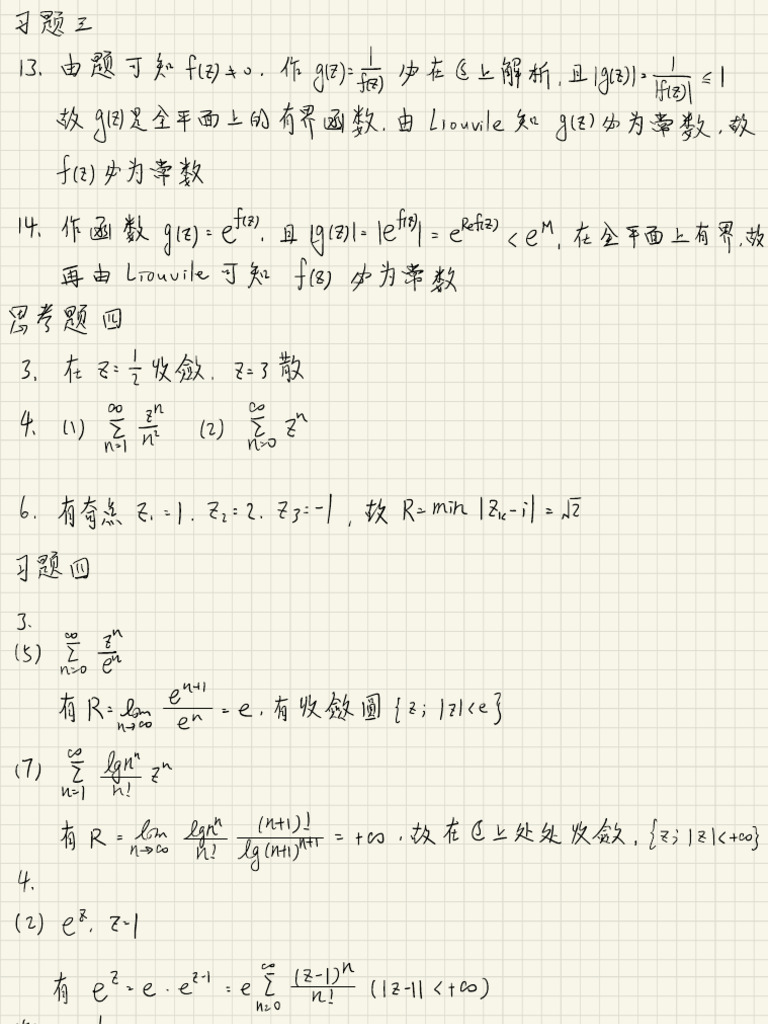 习题三
13. 由题可知 f(z)≠0. 作 g(z)=1/f(z) 必在ℂ上解析, 且|g(z)|=1/|f(z)|≤1
故 g(z)是全平面上的有界函数. 由 Liouvile 知 g(z) 必为常数, 故
f(z)必为常数
14. 作函数 g(z)=e^{f(z)}. 且 |g(z)|=|e^{f(z)}|=e^{Ref(z)}<e^M, 在全平面上有界, 故
再由 Liouvile 可知 f(z) 必为常数
思考题四
3. 在 z=1/2 收敛. z=3 散
4. (1) ∑_{n=1}^{∞} z^n/n^2 (2) ∑_{n=0}^{∞} z^n
6. 有奇点 z_1=1. z_2=2. z_3=-1, 故 R=min |z_k-i|=√2
习题四
3.
(5) ∑_{n=0}^{∞} z^n/e^n
有 R=lim_{n→∞} e^{n+1}/e^n=e. 有收敛圆{z; |z|<e}
(7) ∑_{n=1}^{∞} lgn^n/n! z^n
有 R=lim_{n→∞} lgn^n/n! (n+1)!/lg(n+1)^{n+1}=+∞. 故在ℂ上处处收敛. {z; |z|<+∞}
4.
(2) e^z. z=1
有 e^z=e·e^{z-1}=e∑_{n=0}^{∞} (z-1)^n/n! (|z-1|<+∞)